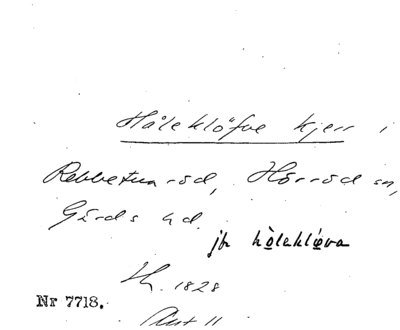 Håleklöfve kjerr i
Rebbetuaröd, Hörröd sn,
Gärds hd.
jfr hòleklǿva
Th. 1828
Nr 7718.
Akt 11